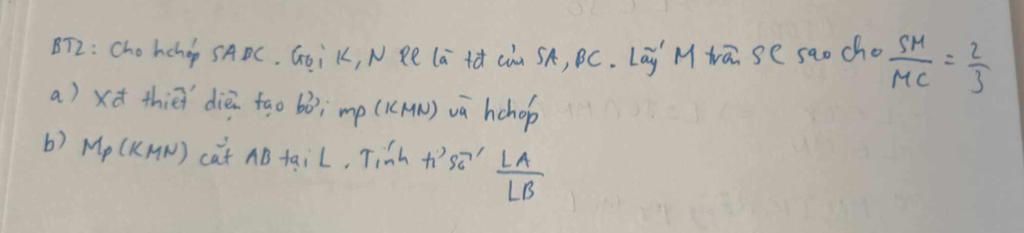 BT2: Cho hchóp SABC. Gọi K, N ll là tđ của SA, BC. Lấy M trên SC sao cho SM/MC = 2/3
a) Xđ thiết diện tạo bởi mp (KMN) và hchóp
b) Mp (KMN) cắt AB tại L. Tính tỉ số LA/LB